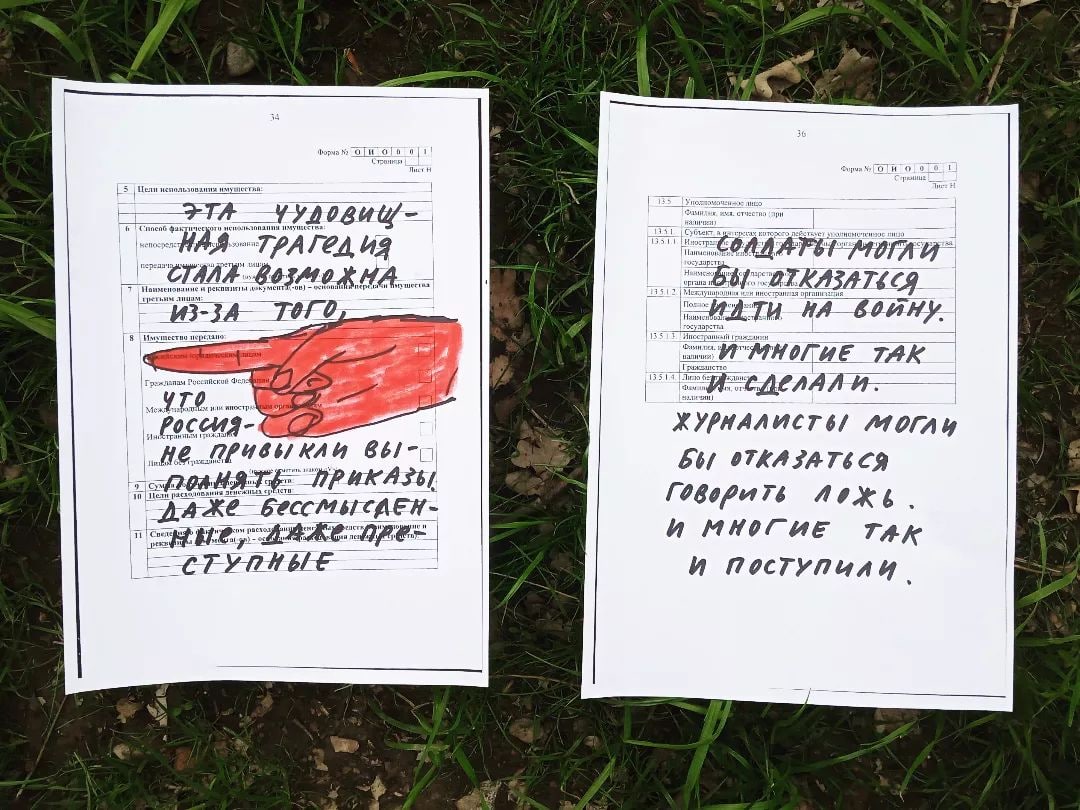 34
Форма № О И О 0 0 1
Страница
Лист Н
5 Цели использования имущества:
ЭТА ЧУДОВИЩ-
6 Способ фактического использования имущества:
НАЯ ТРАГЕДИЯ
передача имущества третьим лицам
СТАЛА ВОЗМОЖНА
7 Наименование и реквизиты документа(-ов) – основания передачи имущества
третьим лицам:
ИЗ-ЗА ТОГО,
8 Имущество передано:
Российским юридическим лицам
Гражданам Российской Федерации
ЧТО
Международным или иностранным организациям
РОССИЯ-
Иностранным гражданам
НЕ ПРИВЫКЛИ ВЫ-
Лицам без гражданства
ПОЛНЯТЬ ПРИКАЗЫ.
9 Сумма денежных средств:
10 Цели расходования денежных средств:
ДАЖЕ БЕССМЫСЛЕН-
11 Сведения о фактическом расходовании денежных средств
НЫЕ, ДАЖЕ ПРЕ-
СТУПНЫЕ
36
Форма № О И О 0 0 1
Страница
Лист Н
13.5 Уполномоченное лицо
Фамилия, имя, отчество (при
наличии)
13.5.1. Субъект, в интересах которого действует уполномоченное лицо
13.5.1.1
СОЛДАТЫ МОГЛИ
Наименование
государства
БЫ ОТКАЗАТЬСЯ
органа иностранного государства
13.5.1.2. Международная или иностранная организация
ИДТИ НА ВОЙНУ.
государства
13.5.1.3. Иностранный гражданин
Фамилия, имя, отчество
наличии)
И МНОГИЕ ТАК
Гражданство
13.5.1.4. Лицо без гражданства
И СДЕЛАЛИ.
Фамилия, имя,
наличии)
ЖУРНАЛИСТЫ МОГЛИ
БЫ ОТКАЗАТЬСЯ
ГОВОРИТЬ ЛОЖЬ.
И МНОГИЕ ТАК
И ПОСТУПИЛИ.